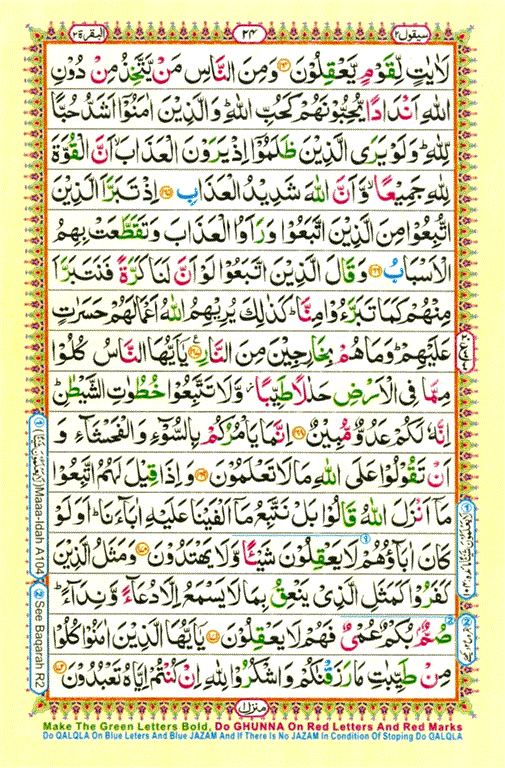 سيقول ٢
٢٤
البقرة ٢
لَاٰيٰتٍ لِّقَوْمٍ يَّعْقِلُوْنَ ﴿۱۶۴﴾ وَمِنَ النَّاسِ مَنْ يَّتَّخِذُ مِنْ دُوْنِ
اللّٰهِ اَنْدَادًا يُّحِبُّوْنَهُمْ كَحُبِّ اللّٰهِ ؕ وَالَّذِيْنَ اٰمَنُوْۤا اَشَدُّ حُبًّا
لِّلّٰهِ ؕ وَلَوْ يَرَى الَّذِيْنَ ظَلَمُوْۤا اِذْ يَرَوْنَ الْعَذَابَ ۙ اَنَّ الْقُوَّةَ
لِلّٰهِ جَمِيْعًا ۙ وَّاَنَّ اللّٰهَ شَدِيْدُ الْعَذَابِ ﴿۱۶۵﴾ اِذْ تَبَرَّاَ الَّذِيْنَ
اتُّبِعُوْا مِنَ الَّذِيْنَ اتَّبَعُوْا وَرَاَوُا الْعَذَابَ وَتَقَطَّعَتْ بِهِمُ
الْاَسْبَابُ ﴿۱۶۶﴾ وَقَالَ الَّذِيْنَ اتَّبَعُوْا لَوْ اَنَّ لَنَا كَرَّةً فَنَتَبَرَّاَ
مِنْهُمْ كَمَا تَبَرَّءُوْا مِنَّا ؕ كَذٰلِكَ يُرِيْهِمُ اللّٰهُ اَعْمَالَهُمْ حَسَرٰتٍ
عَلَيْهِمْ ؕ وَمَا هُمْ بِخٰرِجِيْنَ مِنَ النَّارِ ﴿۱۶۷﴾ يٰۤاَيُّهَا النَّاسُ كُلُوْا
مِمَّا فِى الْاَرْضِ حَلٰلًا طَيِّبًا ۖ وَّلَا تَتَّبِعُوْا خُطُوٰتِ الشَّيْطٰنِ ؕ
اِنَّهٗ لَكُمْ عَدُوٌّ مُّبِيْنٌ ﴿۱۶۸﴾ اِنَّمَا يَاْمُرُكُمْ بِالسُّوْٓءِ وَالْفَحْشَآءِ وَ
اَنْ تَقُوْلُوْا عَلَى اللّٰهِ مَا لَا تَعْلَمُوْنَ ﴿۱۶۹﴾ وَاِذَا قِيْلَ لَهُمُ اتَّبِعُوْا
مَاۤ اَنْزَلَ اللّٰهُ قَالُوْا بَلْ نَتَّبِعُ مَاۤ اَلْفَيْنَا عَلَيْهِ اٰبَآءَنَا ؕ اَوَلَوْ
كَانَ اٰبَآؤُهُمْ لَا يَعْقِلُوْنَ شَيْـًٔا وَّلَا يَهْتَدُوْنَ ﴿۱۷۰﴾ وَمَثَلُ الَّذِيْنَ
كَفَرُوْا كَمَثَلِ الَّذِيْ يَنْعِقُ بِمَا لَا يَسْمَعُ اِلَّا دُعَآءً وَّنِدَآءً ؕ
صُمٌّۢ بُكْمٌ عُمْيٌ فَهُمْ لَا يَعْقِلُوْنَ ﴿۱۷۱﴾ يٰۤاَيُّهَا الَّذِيْنَ اٰمَنُوْا كُلُوْا
مِنْ طَيِّبٰتِ مَا رَزَقْنٰكُمْ وَاشْكُرُوْا لِلّٰهِ اِنْ كُنْتُمْ اِيَّاهُ تَعْبُدُوْنَ ﴿۱۷۲﴾
① Maaa-Idah A104
② See Baqarah R2
منزل ١
Make The Green Letters Bold, Do GHUNNA On Red Letters And Red Marks
Do QALQLA On Blue Leters And Blue JAZAM And If There Is No JAZAM In Condition Of Stoping Do QALQLA